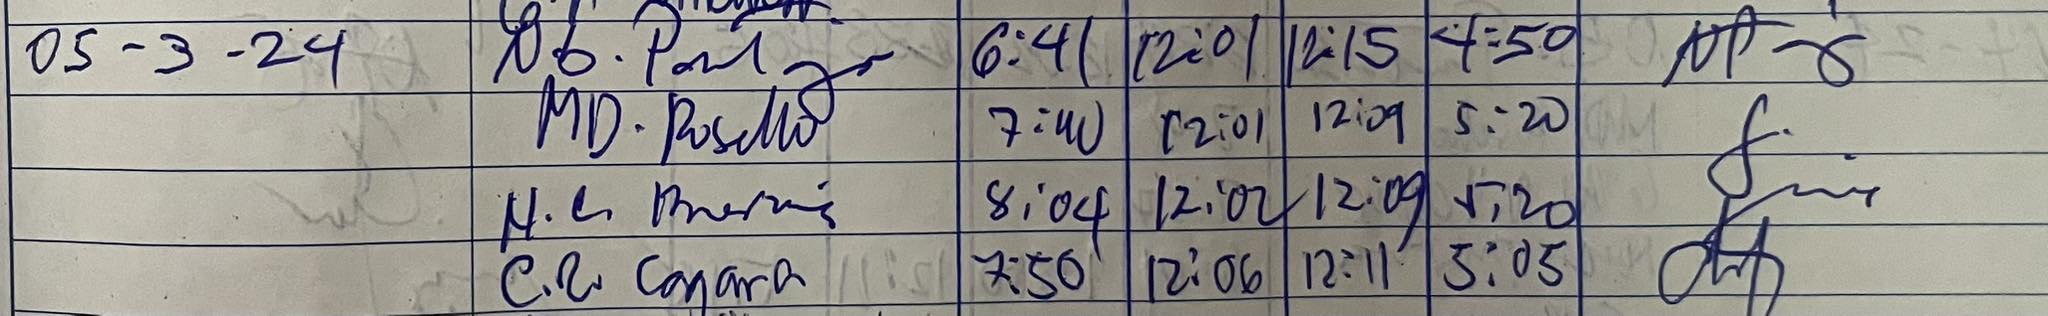 05-3-24 6:41 12:01 12:15 4:50
MD. Rosello 7:40 12:01 12:09 5:20
8:04 12:02 12:09 5:20
C.R. Cagara 7:50 12:06 12:11 5:05